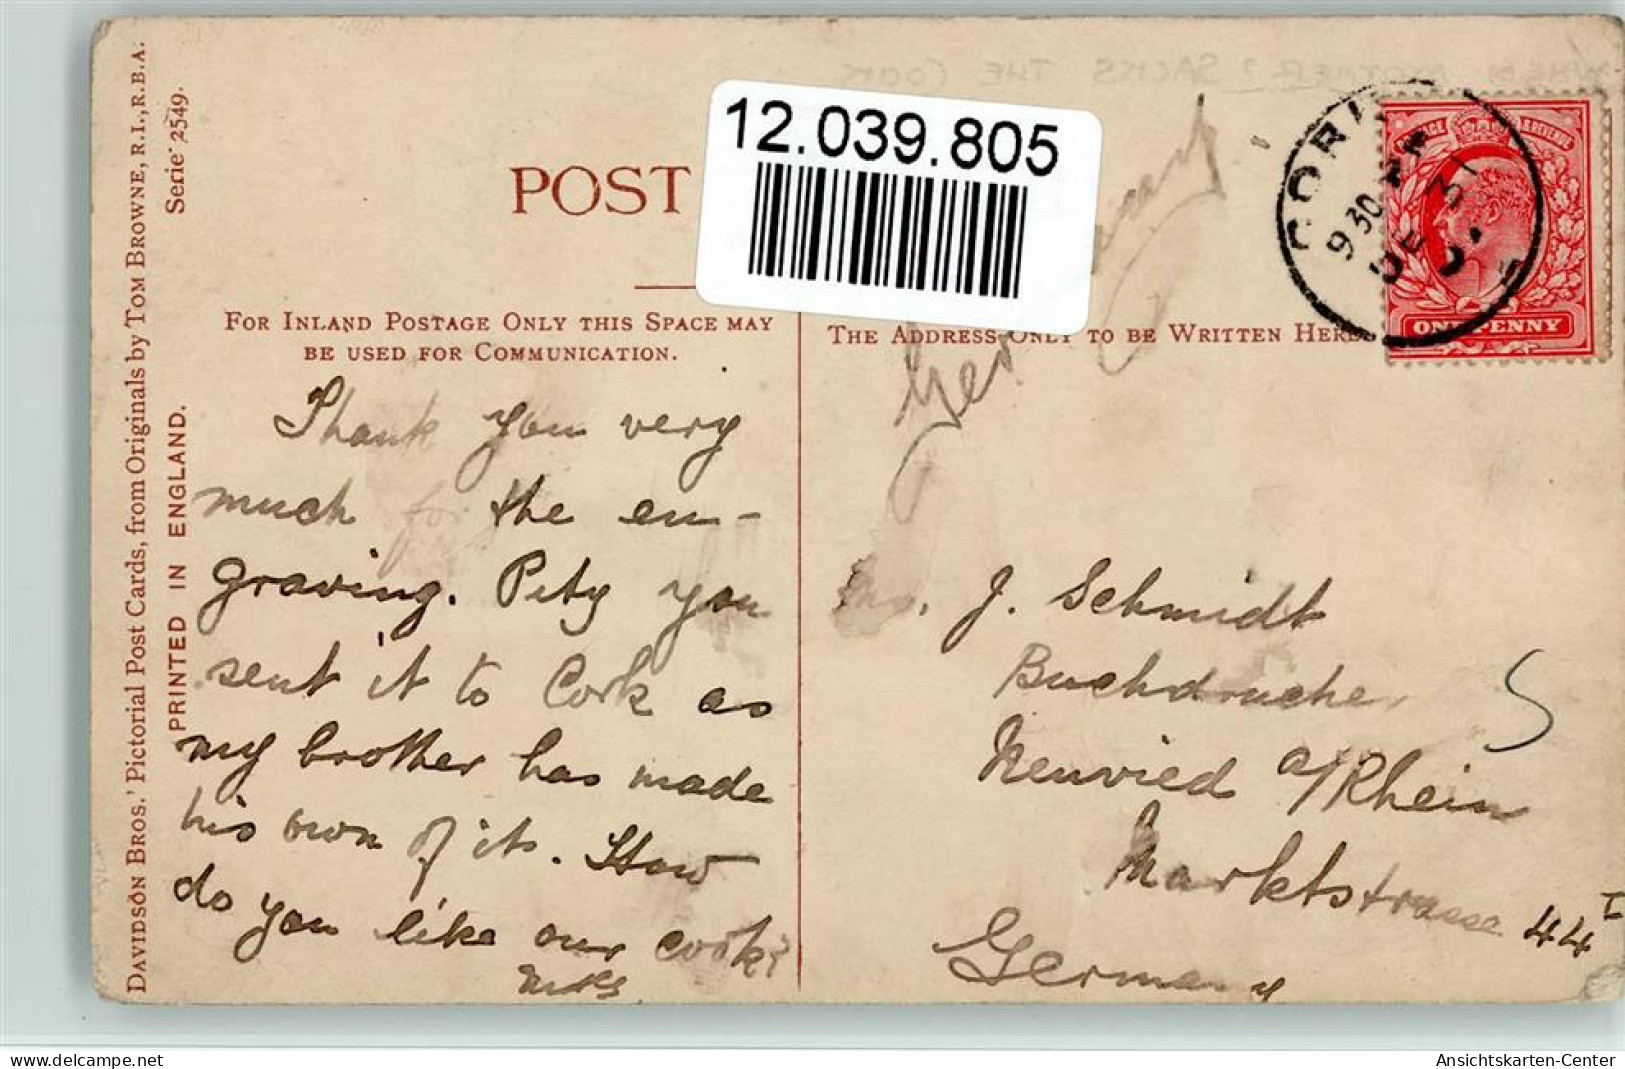 WHEN MOTHER SACKS THE COOK
12.039.805
POST
FOR INLAND POSTAGE ONLY THIS SPACE MAY
BE USED FOR COMMUNICATION.
THE ADDRESS ONLY TO BE WRITTEN HERE
DAVIDSON BROS.' Pictorial Post Cards, from Originals by TOM BROWNE, R.I., R.B.A.
Serie 2549.
PRINTED IN ENGLAND.
CORK
9 30 PM
DE 31
POSTAGE & REVENUE
ONE PENNY
Thank you very
much for the en-
graving. Pity you
sent it to Cork as
my brother has made
his own of it. How
do you like our cook?
Germany
J. Schmidt
Buchdrucker
Neuwied a/Rhein
Marktstrasse 44 I
Germany
Ansichtskarten-Center